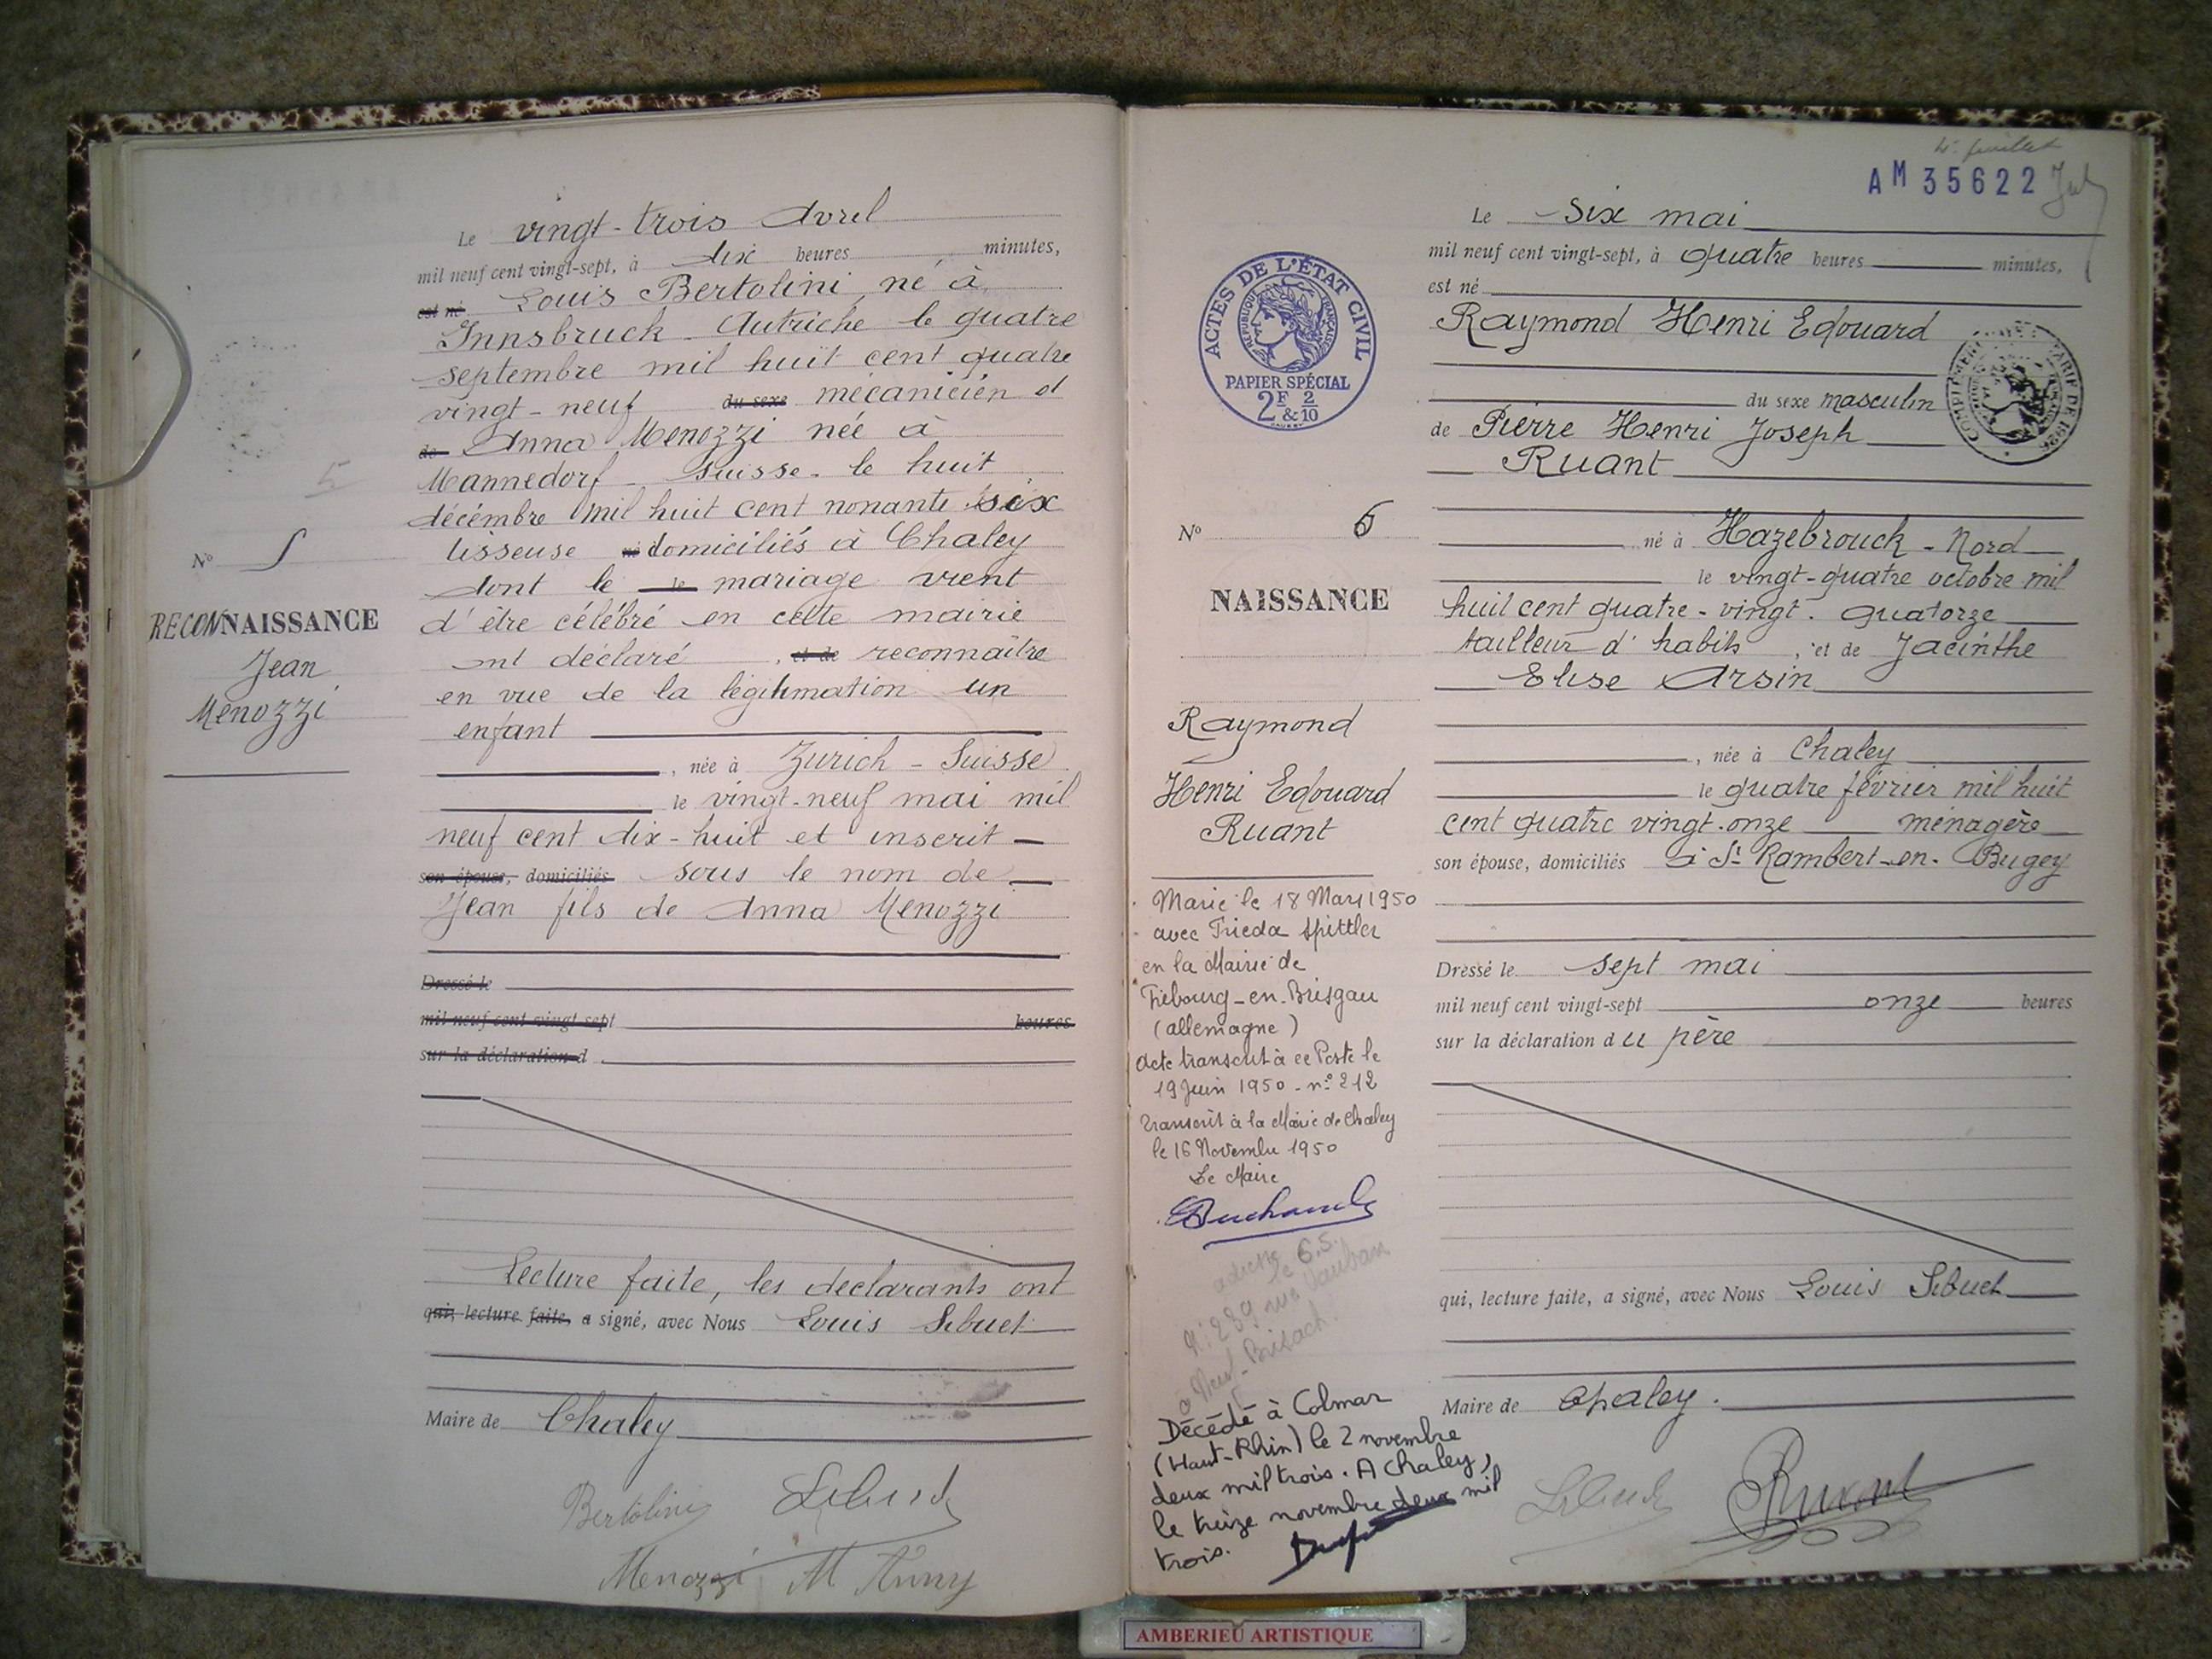 Le vingt-trois Avril
mil neuf cent vingt-sept, à dix heures minutes,
est né Louis Bertolini, né à
Innsbruck - Autriche, le quatre
septembre mil huit cent quatre
vingt-neuf du sexe mécanicien et
de Anna Menozzi née à
Mannedorf - Suisse - le huit
décembre mil huit cent nonante six
tisseuse né domiciliés à Chaley
dont le le mariage vient
d'être célébré en cette mairie
ont déclaré , et de reconnaître
en vue de la légitimation un
enfant
, née à Zurich - Suisse
le vingt-neuf mai mil
neuf cent dix-huit et inscrit
son épouse, domiciliés sous le nom de
Jean fils de Anna Menozzi
Dressé le
mil neuf cent vingt-sept heures
sur la déclaration d
Lecture faite, les déclarants ont
qui, lecture faite, a signé, avec Nous Louis Sibuet
Maire de Chaley
Bertolini Sibuet
Menozzi
5
N° 5
RECONNAISSANCE
Jean
Menozzi
AM 35622
ACTES DE L'ÉTAT CIVIL
RÉPUBLIQUE FRANÇAISE
PAPIER SPÉCIAL
2F 2
& 10
N° 6
NAISSANCE
Raymond
Henri Edouard
Ruant
Marié le 18 Mars 1950
avec Frieda Spittler
en la Mairie de
Fribourg-en-Brisgau
(allemagne)
Acte transcrit à ce Poste le
19 Juin 1950 - n° 212
Transcrit à la Mairie de Chaley
le 16 Novembre 1950
Le Maire
Décédé à Colmar
(Haut-Rhin) le 2 novembre
deux mil trois. A Chaley,
le treize novembre deux mil
trois.
Le six mai
mil neuf cent vingt-sept, à quatre heures minutes,
est né
Raymond Henri Edouard
du sexe masculin
de Pierre Henri Joseph
Ruant
né à Hazebrouck - Nord
le vingt-quatre octobre mil
huit cent quatre-vingt-quatorze
tailleur d'habits , et de Jacinthe
Elise Arsin
, née à Chaley
le quatre février mil huit
cent quatre vingt-onze ménagère
son épouse, domiciliés à St Rambert-en-Bugey
Dressé le sept mai
mil neuf cent vingt-sept onze heures
sur la déclaration du père
qui, lecture faite, a signé, avec Nous Louis Sibuet
Maire de Chaley.
Sibuet Ruant
AMBERIEU ARTISTIQUE